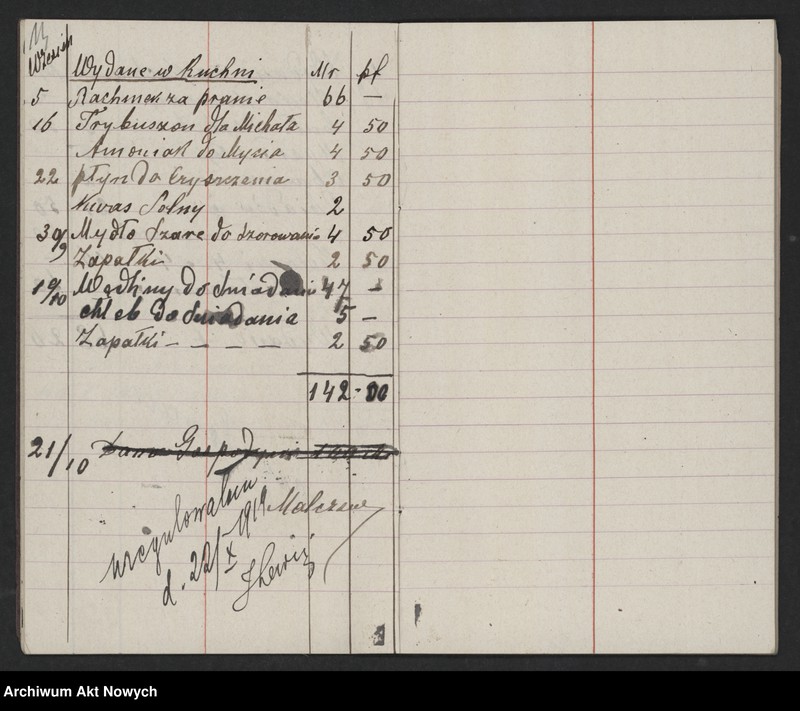 Wrzesień
Wydane w Kuchni Mr pf
5 Rachunek za pranie 66 —
16 Trybuszon dla Michała 4 50
Amoniak do Mycia 4 50
22 płyn do Czyszczenia 3 50
Kwas Solny 2
30/9 Mydło Szare do szorowania 4 50
Zapałki 2 50
19/10 Wędliny do śniadania 47 —
chleb do śniadania 5 —
Zapałki — — — — 2 50
142 - 00
21/10 Gospodyni
uregulowałem
d. 22/X 1919 Malczew
JLewi
Archiwum Akt Nowych